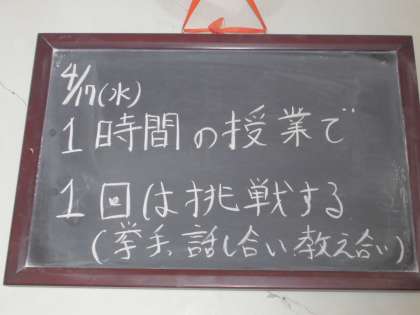 4/17(水)
1時間の授業で
1回は挑戦する
(挙手、話し合い、教え合い)